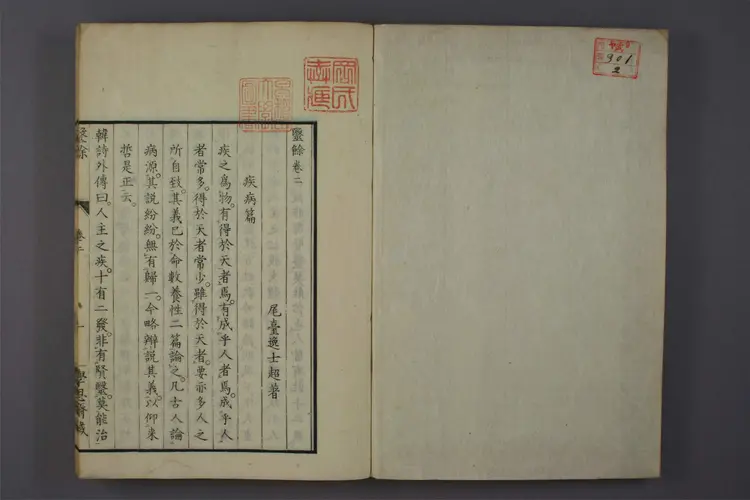 醫餘卷二
尾臺逸士超著
疾病篇
疾之爲物。有得於天者焉。有成乎人者焉。成乎人
者常多。得於天者常少。雖得於天者。要亦多人之
所自致。其義已於命數養性二篇論之。凡古人論
病源。其說紛紛。無有歸一。今略辯說其義。以仰來
哲是正云。
韓詩外傳曰。人主之疾。十有二發。非有賢醫。莫能治
卷二
901
2